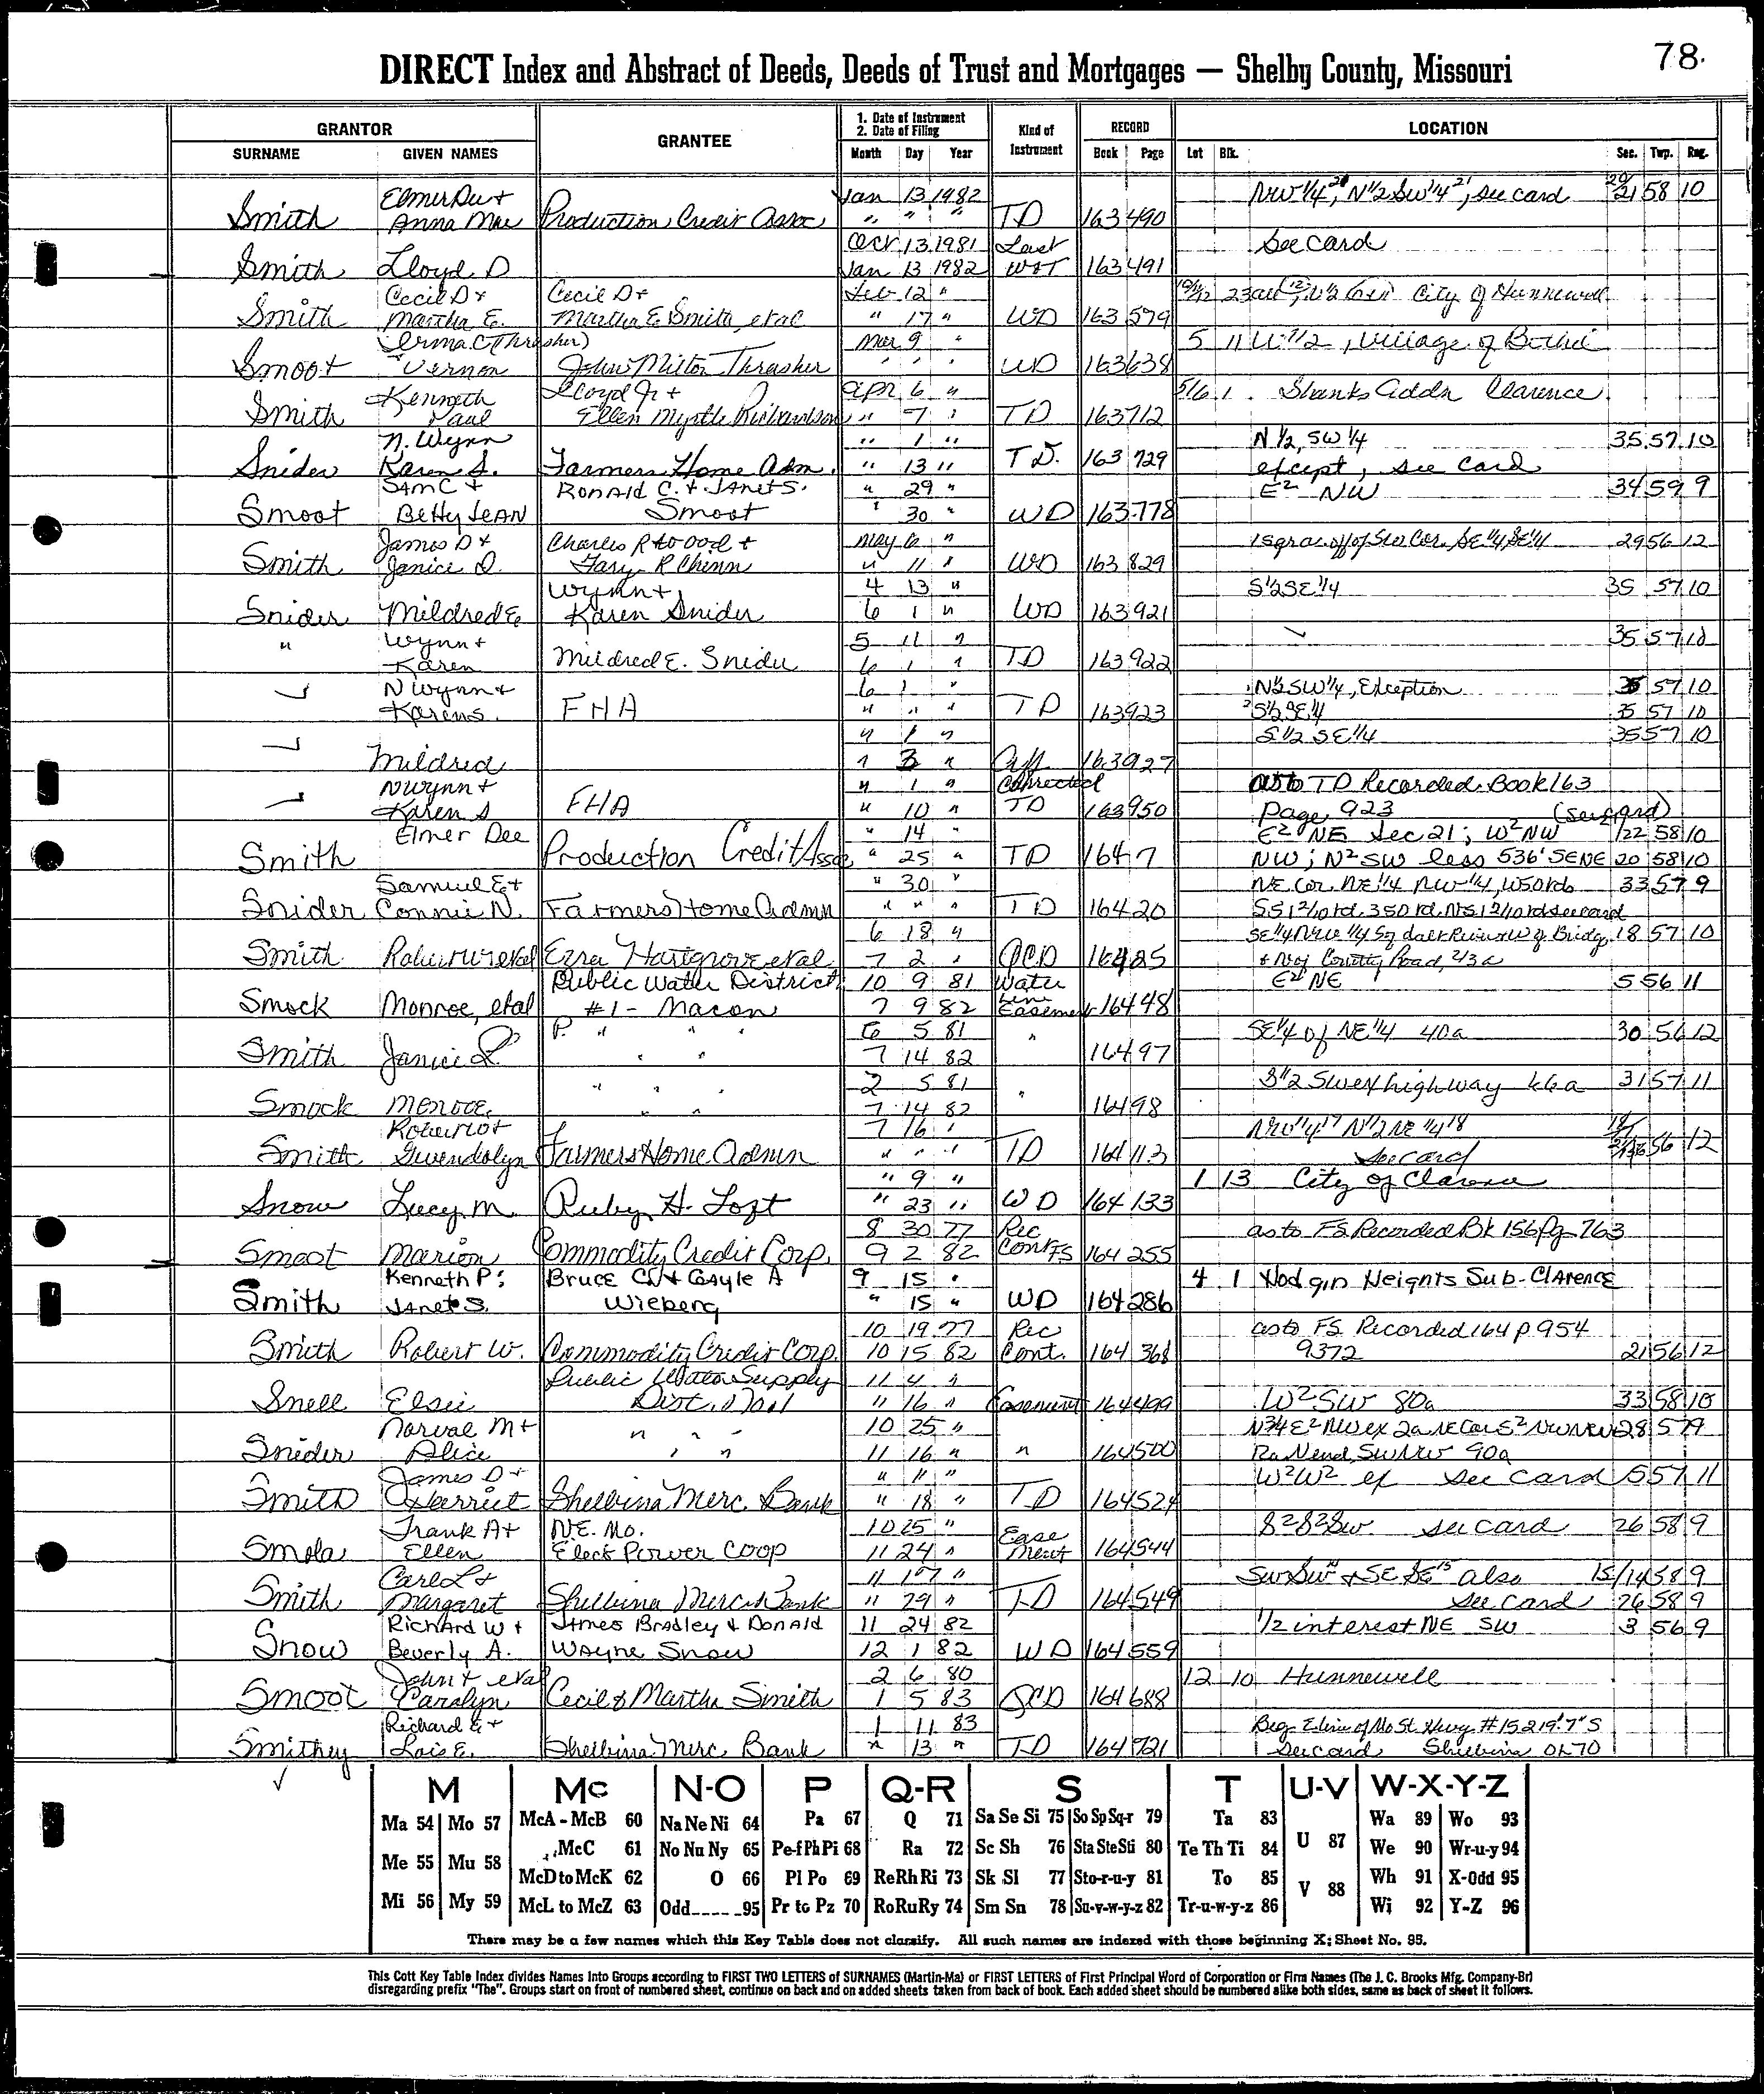 78.
DIRECT Index and Abstract of Deeds, Deeds of Trust and Mortgages — Shelby County, Missouri
GRANTOR GRANTEE 1. Date of Instrument 2. Date of Filing Kind of Instrument RECORD LOCATION
SURNAME GIVEN NAMES Month Day Year Book Page Lot Blk. Sec. Twp. Rng.
Elmer Dee + Jan 13 1982 NW 1/4 20, N 1/2 SW 1/4 21, see card 20/21 58 10
Smith Anna Mae Production Credit Assoc " " " TD 163 490
Oct 13 1981 Last See card
Smith Lloyd D Jan 13 1982 W+T 163 491
Cecil D + Cecil D + Feb 12 " City of Hunnewell
Smith Martha E. Martha E Smith, etal " 17 " WD 163 579
Irma C (Thrasher) Mar 9 " 5 11 W 1/2, Village of Bethel
Smoot Vernon John Milton Thrasher " " " WD 163 638
Kenneth Lloyd Jr + Apr 6 " 5/6 1 Shanks Addn Clarence
Smith Paul Ellen Myrtle Richardson " 7 " TD 163 712
N. Wynn " 1 " N 1/2, SW 1/4 35 57 10
Snider Karen S. Farmers Home Adm. " 13 " T D. 163 729 except, see card
Sam C + Ronald C. + Janet S. " 29 " E2 NW 34 59 9
Smoot Betty Jean Smoot " 30 " WD 163 778
James D + Charles R Atwood + May 6 " SW Cor. SE 1/4 SE 1/4 29 56 12
Smith Janice L. Gary R Chinn " 11 " WD 163 829
Wynn + 4 13 " S 1/2 SE 1/4 35 57 10
Snider Mildred E Karen Snider 6 1 " WD 163 921
" Wynn + 5 11 " 35 57 10
Karen Mildred E. Snider 6 1 " TD 163 922
N Wynn + 6 1 " 1 N 1/2 SW 1/4, Exception 35 57 10
Karen S. FHA " " " TD 163 923 2 S 1/2 SE 1/4 35 57 10
" 1 " S 1/2 SE 1/4 35 57 10
Mildred " 3 " Aff. 163 927
N Wynn + " 1 " Corrected as to TD Recorded Book 163
Karen S FHA " 10 " TD 163 950 Page 923 (see card)
Elmer Dee " 14 " E2 NE Sec 21; W2 NW 22 58 10
Smith Production Credit Assoc " 25 " TD 164 7 NW; N2 SW less 536' SENE 20 58 10
Samuel E + " 30 " NE Cor. NE 1/4 NW 1/4, W50rds 33 57 9
Snider Connie N. Farmers Home Admn " " " TD 164 20
6 18 " 18 57 10
Smith Robert W etal Ezra Hartgrove etal 7 2 " QCD 164 25 + N of County Road, 43a
Public Water District 10 9 81 Water E2 NE 5 56 11
Smock Monroe, etal #1 - Macon 7 9 82 Line Easement 164 48
P. " " " 6 5 81 SE 1/4 of NE 1/4 40a 30 56 12
Smith Janice L " " 7 14 82 " 164 97
" " " 2 5 81 S 1/2 SW ex highway 66a 31 57 11
Smock Monroe, " " 7 14 82 " 164 98
Robert O + 7 16 " NW 1/4 17 N 1/2 NE 1/4 18
Smith Gwendolyn Farmers Home Admn " " " TD 164 113 See card 56 12
" 9 " 1 13 City of Clarence
Snow Lucy M. Ruby H. Loft " 23 " WD 164 133
8 30 77 Rec as to FS Recorded Bk 156 Pg 763
Smoot Marion Commodity Credit Corp. 9 2 82 Cont FS 164 255
Kenneth P; Bruce Cl + Gayle A 9 15 " 4 1 Hodgin Heights Sub - Clarence
Smith Janet S. Wieberg " 15 " WD 164 286
10 19 77 Rec as to FS Recorded 164 p 954
Smith Robert W. Commodity Credit Corp. 10 15 82 Cont. 164 368 9372 21 56 12
Public Water Supply 11 4 "
Snell Elsie Dist. No 1 " 16 " Easement 164 499 W2 SW 80a 33 58 10
Norval M + " " " 10 25 " N 3/4 E2 NW ex 2a NE Cor E2 NW NW 28 57 9
Snider Alice " " 11 16 " " 164 500 90a
James D + " 11 " W2 W2 ex see card 5 57 11
Smith Harriet Shelbina Merc. Bank " 18 " TD 164 524
Frank A + N.E. Mo. 10 25 " Ease S2 S2 SW see card 26 58 9
Smola Ellen Elect Power Coop 11 24 " ment 164 544
Carl L + 11 17 " SW SW 14 + SE SE 15 also 15/14 58 9
Smith Margaret Shelbina Merc. Bank " 29 " TD 164 549 see card 26 58 9
Richard W + James Bradley & Donald 11 24 82 1/2 interest NE SW 3 56 9
Snow Beverly A. Wayne Snow 12 1 82 WD 164 559
John + etal 2 6 80 12 10 Hunnewell
Smoot Carolyn Cecil & Martha Smith 1 5 83 QCD 164 688
Richard E + 1 11 83 Beg. E line of Mo St. Hwy. #15 219'.7" S
Smithey Lois E. Shelbina Merc. Bank " 13 " TD 164 721 See card Shelbina OL 70
M Mc N-O P Q-R S T U-V W-X-Y-Z
Ma 54 Mo 57 McA - McB 60 Na Ne Ni 64 Pa 67 Q 71 Sa Se Si 75 So Sp Sq-r 79 Ta 83 Wa 89 Wo 93
McC 61 No Nu Ny 65 Pe-f Ph Pi 68 Ra 72 Sc Sh 76 Sta Ste Sti 80 Te Th Ti 84 U 87 We 90 Wr-u-y 94
Me 55 Mu 58 McD to McK 62 O 66 Pl Po 69 Re Rh Ri 73 Sk Sl 77 Sto-r-u-y 81 To 85 V 88 Wh 91 X-Odd 95
Mi 56 My 59 McL to McZ 63 Odd 95 Pr to Pz 70 Ro Ru Ry 74 Sm Sn 78 Su-v-w-y-z 82 Tr-u-w-y-z 86 Wi 92 Y-Z 96
There may be a few names which this Key Table does not classify. All such names are indexed with those beginning X; Sheet No. 95.
This Cott Key Table Index divides Names into Groups according to FIRST TWO LETTERS of SURNAMES (Martin-Ma) or FIRST LETTERS of First Principal Word of Corporation or Firm Names (The J. C. Brooks Mfg. Company-Br)
disregarding prefix "The". Groups start on front of numbered sheet, continue on back and on added sheets taken from back of book. Each added sheet should be numbered alike both sides, same as back of sheet it follows.